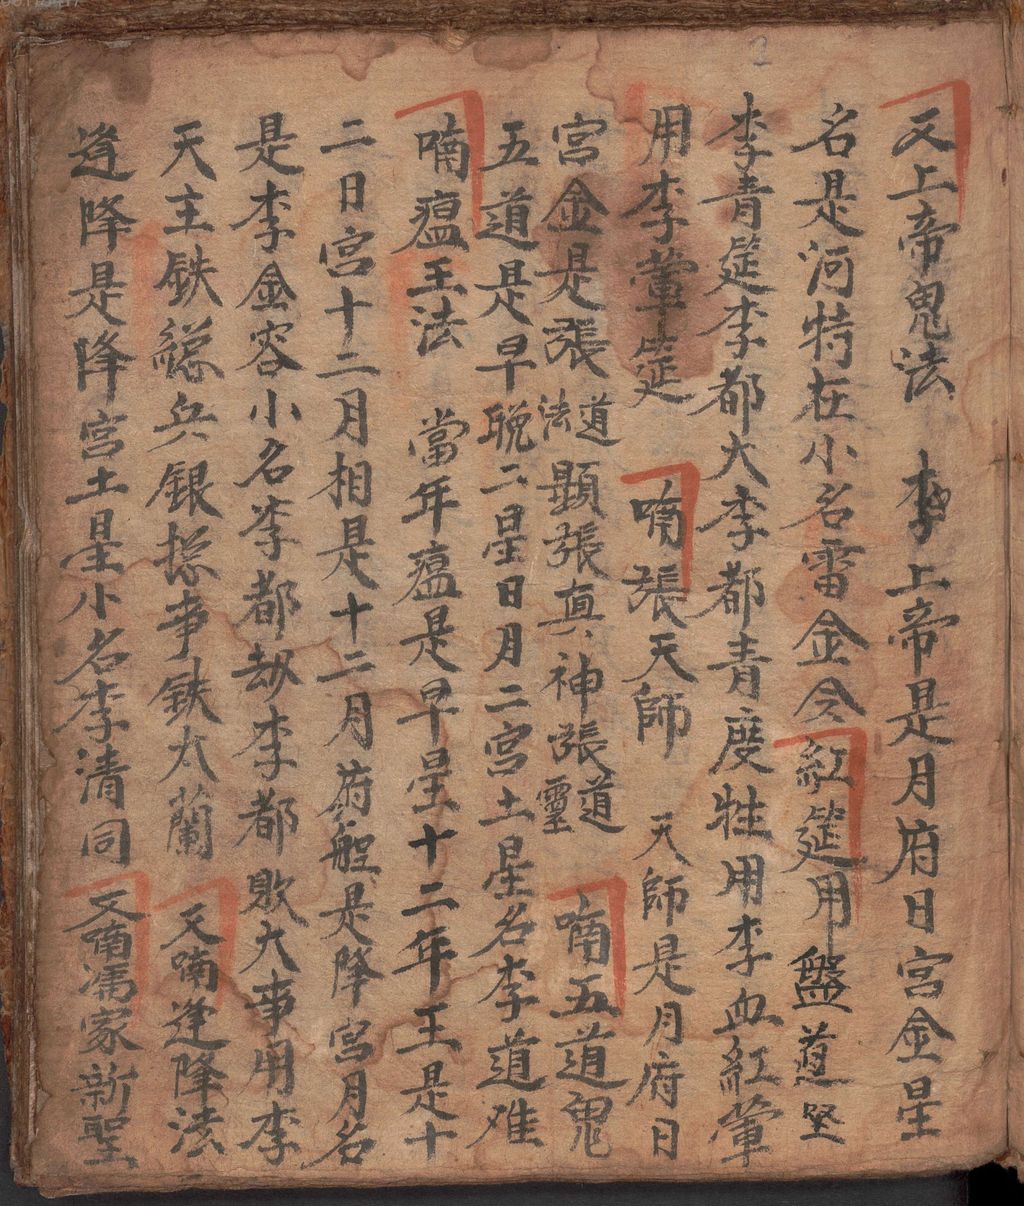 又上帝鬼法 李上帝是月府日宮金星
名是河特在小名雷金令紅筵用盤道堅
李青筵李都大李都青度牲用李血紅葷
用李葷筵 喃張天師 天師是月府日
宮金是張道法顯張真神張道靈 喃五道鬼
五道是早晚二星日月二宮土星名李道难
喃瘟王法 當年瘟是早星十二年王是十
二日宮十二月相是十二月府船是降宮月名
是李金容小名李都劫李都敗大事用李
天主铁總兵銀捴事鉄太蘭 又喃逢降法
逢降是降宮土星小名李清同 又喃馮家新聖